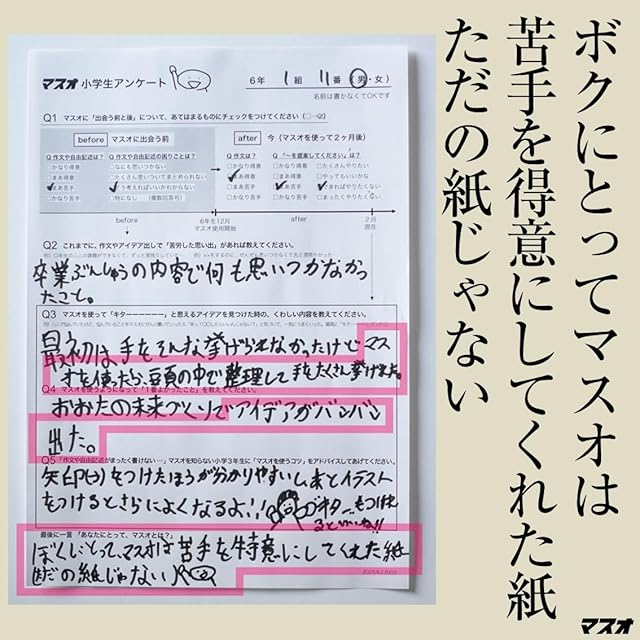 ボクにとってマスオは
苦手を得意にしてくれた紙
ただの紙じゃない
マスオ 小学生アンケート
6年 1組 11番 (男・女)
名前は書かなくてOKです
Q1 マスオに「出会う前と後」について、あてはまるものにチェックをつけてください
before マスオに出会う前
after 今(マスオを使って2ヶ月後)
Q 作文や自由記述は?
□かなり得意
□まあ得意
□まあ苦手
□かなり苦手
Q 作文や自由記述の困りごとは?
□なにも思いつかない
□たくさん思いついてまとめられない
□どう考えればいいかわからない
□特になし (複数回答可)
Q 作文は?
□かなり得意
□まあ得意
□まあ苦手
□かなり苦手
Q 「〜を提案してください」は?
□かなり得意
□まあ得意
□まあ苦手
□かなり苦手
□たくさんやりたい
□やってもいいかな
□できればやりたくない
□まったくやりたくない
before
6年生12月
マスオ使用開始
after
2月
現在
Q2 これまでに、作文やアイデア出しで「苦労した思い出」があれば教えてください。
卒業ぶんしゅうの内容で何も思いつかなかっ
たこと。
Q3 マスオを使って「キターーーーーー」と思えるアイデアを見つけた時の、くわしい内容を教えてください。
最初は手をそんな挙げられなかったけどマス
オを使ったら、豆頁の中で整理して手をたくさん挙げました。
Q4 マスオを使うようになって「1番よかったこと」を教えてください。
おおたの未来づくりでアイデアがバンバン
出た。
Q5 「作文や自由記述がまったく書けない…」マスオを知らない小学3年生に「マスオを使うコツ」をアドバイスしてあげてください。
矢印(→)をつけたほうが分かりやすいしあとイラスト
をつけるとさらによくなるよ!!
最後に一言「あなたにとって、マスオとは?」
ぼくにとって、マスオは苦手を特意にしてくれた紙
ただの紙じゃない
マスオ